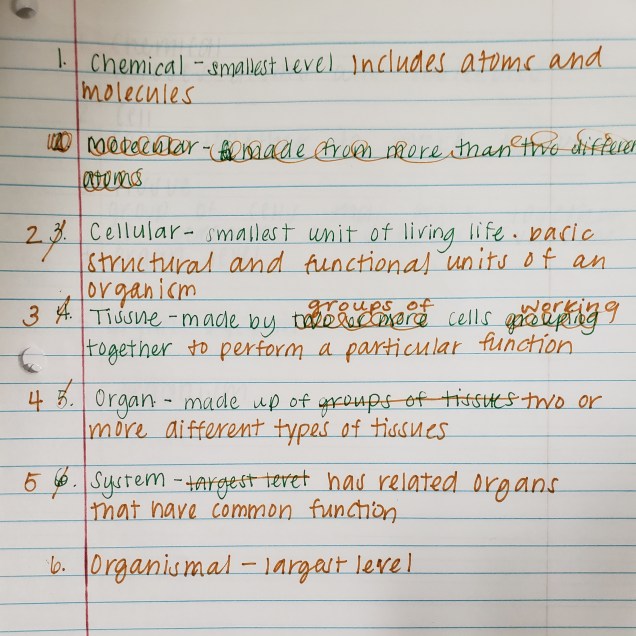 1. Chemical - smallest level includes atoms and
molecules
molecular - made from more than two different
atoms
2 3. Cellular - smallest unit of living life. basic
structural and functional units of an
organism
groups of working
3 4. Tissue - made by two or more cells grouping
together to perform a particular function
4 5. Organ - made up of groups of tissues two or
more different types of tissues
5 6. System - largest level has related organs
that have common function
6. Organismal - largest level